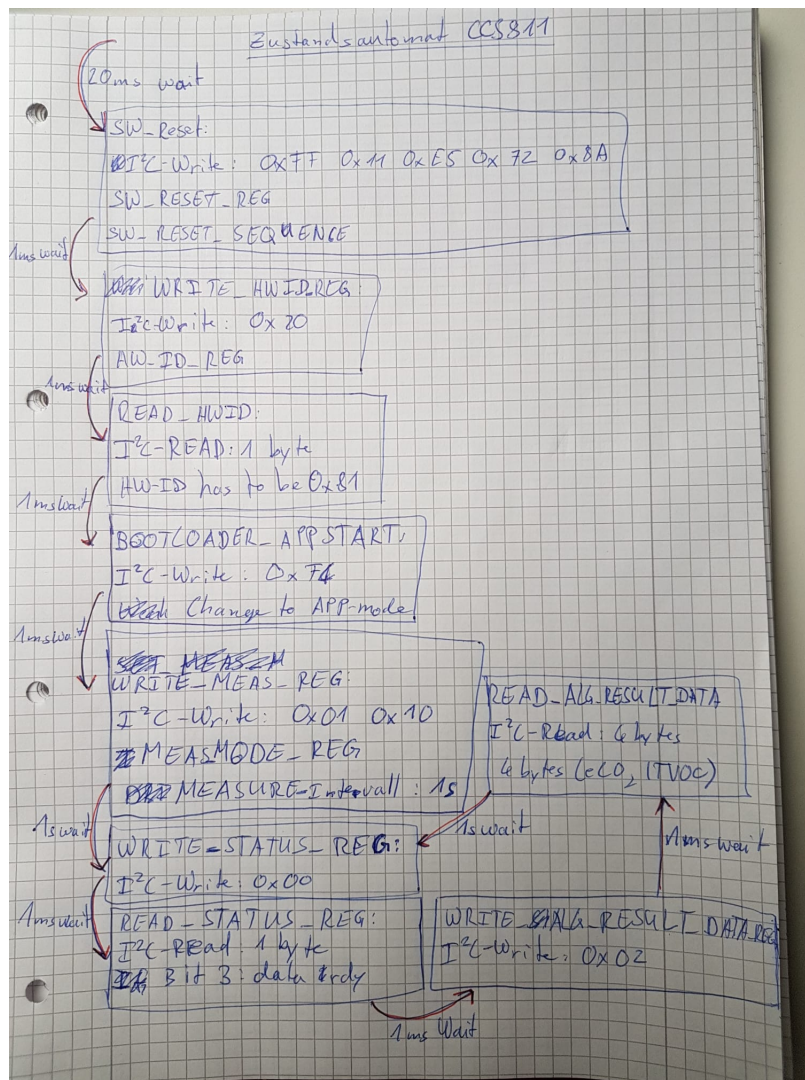 Zustandsautomat CCS811
20ms wait
SW_Reset:
I²C-Write: 0xFF 0x11 0xE5 0x72 0x8A
SW_RESET_REG
SW_RESET_SEQUENCE
1ms wait
WRITE_HWID_REG:
I²C-Write: 0x20
HW-ID_REG
1ms wait
READ_HWID:
I²C-READ: 1 byte
HW-ID has to be 0x81
1ms wait
BOOTLOADER_APPSTART:
I²C-Write: 0xF4
Change to APP-mode
1ms wait
WRITE_MEAS_REG:
I²C-Write: 0x01 0x10
MEASMODE_REG
MEASURE-Intervall: 1s
1s wait
WRITE_STATUS_REG:
I²C-Write: 0x00
1ms wait
READ_STATUS_REG:
I²C-Read: 1 byte
Bit 3: data rdy
1ms Wait
WRITE_ALG_RESULT_DATA_REG
I²C-Write: 0x02
1ms wait
READ_ALG_RESULT_DATA
I²C-Read: 4 bytes
4 bytes (eCO₂, TVOC)
1s wait